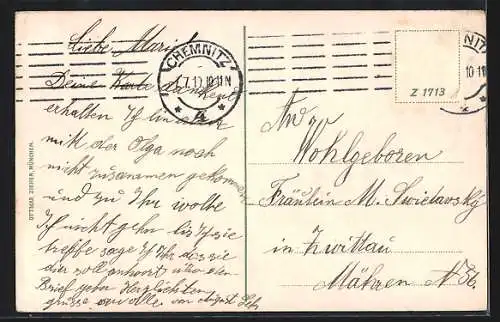 Liebe Marie
Deine Karte dankend
erhalten Ich bin
mitt der Olga noch
nicht zusammen gekommen
und zu Ihr wolte
Ich nicht gehn bis Ich sie
treffe sage Ich Ihr das sie
dir soll
Brief gehn Herzlichten
grüsse von August
CHEMNITZ
10-11 N
* 4 *
OTTMAR ZIEHER, MÜNCHEN.
Z 1713
10-11
Wohlgeboren
Fräulein M. Swietavsky
in Zwittau
Mähren